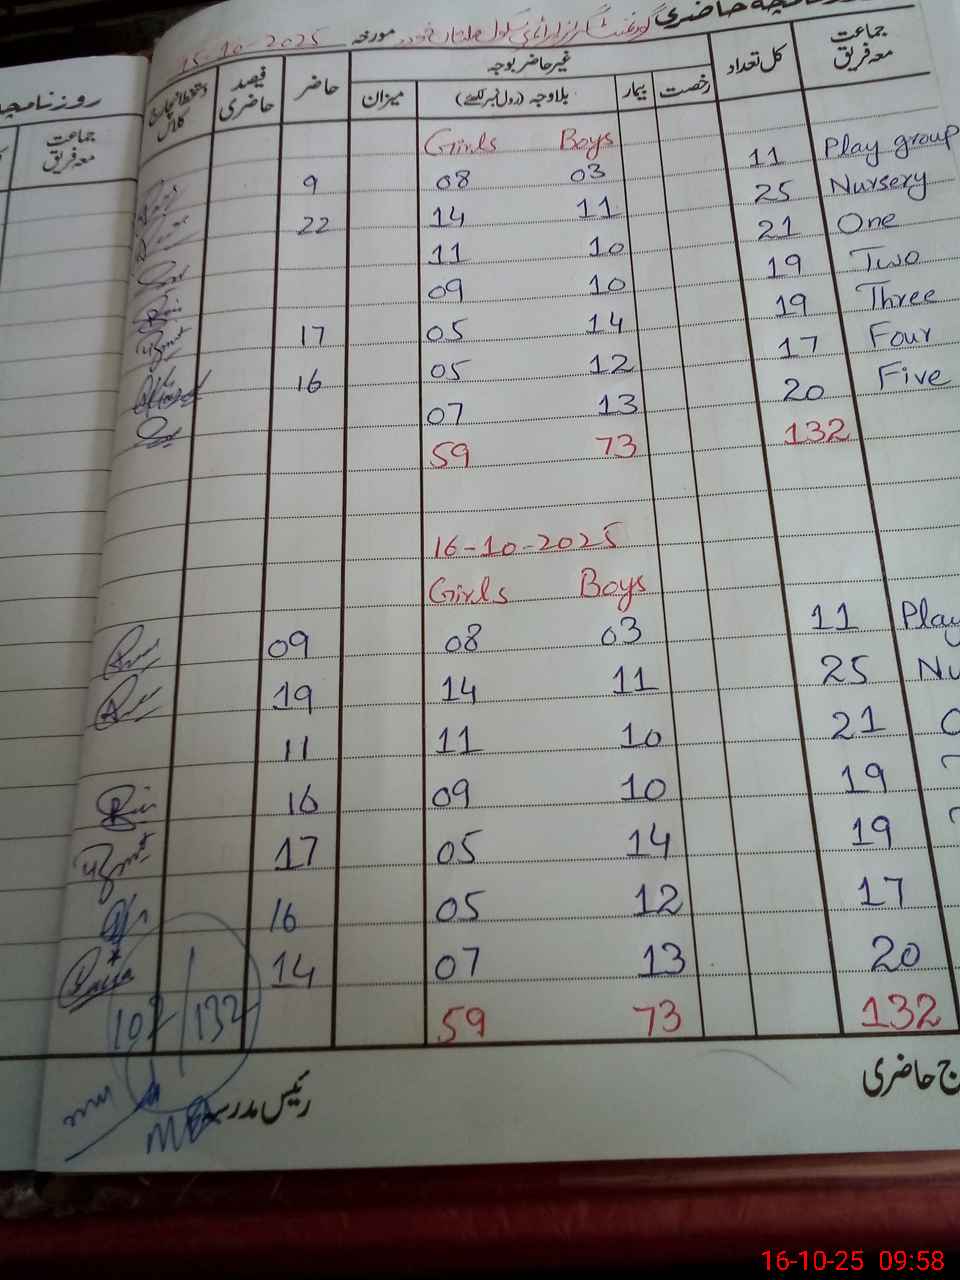 روزنامچہ حاضری گورنمنٹ گرلز پرائمری سکول مورخہ 15-10-2025
جماعت معہ فریق کل تعداد غیر حاضر بوجہ حاضر فیصد حاضری
رخصت بیمار بلاوجہ (رول نمبر لکھئے) میزان
روزنامچہ
جماعت معہ فریق
Girls Boys
Play group 11 03 08 9
Nursery 25 11 14 22
One 21 10 11
Two 19 10 09
Three 19 14 05 17
Four 17 12 05 16
Five 20 13 07
132 73 59
16-10-2025
Girls Boys
Play 11 03 08 09
Nu 25 11 14 19
21 10 11 11
19 10 09 16
19 14 05 17
17 12 05 16
20 13 07 14
132 73 59
102/132
ج حاضری
رئیس مدرسہ
16-10-25 09:58